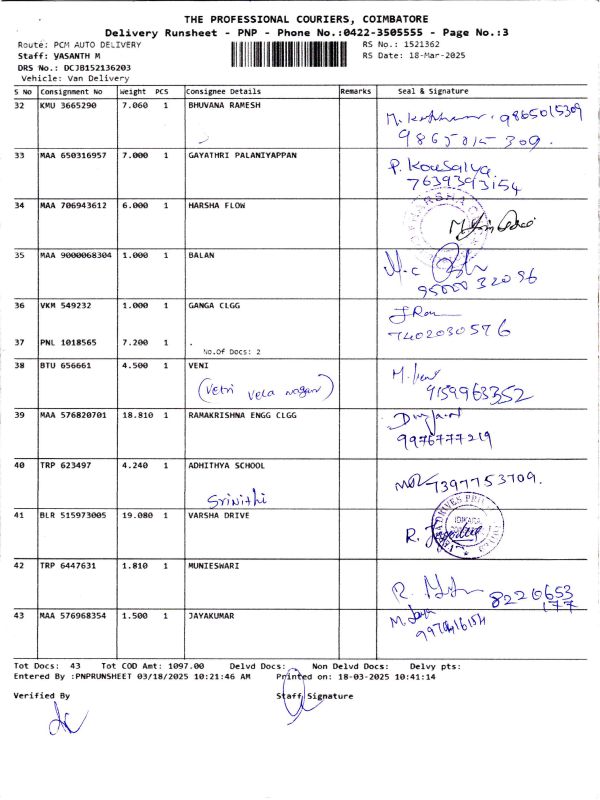 THE PROFESSIONAL COURIERS, COIMBATORE
Delivery Runsheet - PNP - Phone No.:0422-3505555 - Page No.:3
Route: PCM AUTO DELIVERY
RS No.: 1521362
Staff: YASANTH M
RS Date: 18-Mar-2025
DRS No.: DCJB152136203
Vehicle: Van Delivery
S No Consignment No Weight PCS Consignee Details Remarks Seal & Signature
32 KMU 3665290 7.060 1 BHUVANA RAMESH
9865015309
9865015309.
33 MAA 650316957 7.000 1 GAYATHRI PALANIYAPPAN
P. Kousalya
7639393154
34 MAA 706943612 6.000 1 HARSHA FLOW
35 MAA 9000068304 1.000 1 BALAN
9500032096
36 VKM 549232 1.000 1 GANGA CLGG
7402030576
37 PNL 1018565 7.200 1 .
No.Of Docs: 2
38 BTU 656661 4.500 1 VENI
(Vetri Vela nagar)
9159963352
39 MAA 576820701 18.810 1 RAMAKRISHNA ENGG CLGG
9976777219
40 TRP 623497 4.240 1 ADHITHYA SCHOOL
7397753709.
Srinithi
41 BLR 515973005 19.080 1 VARSHA DRIVE
42 TRP 6447631 1.810 1 MUNIESWARI
8220653
177
43 MAA 576968354 1.500 1 JAYAKUMAR
M. Jaya
Tot Docs: 43 Tot COD Amt: 1097.00 Delvd Docs: Non Delvd Docs: Delvy pts:
Entered By :PNPRUNSHEET 03/18/2025 10:21:46 AM Printed on: 18-03-2025 10:41:14
Verified By Staff Signature